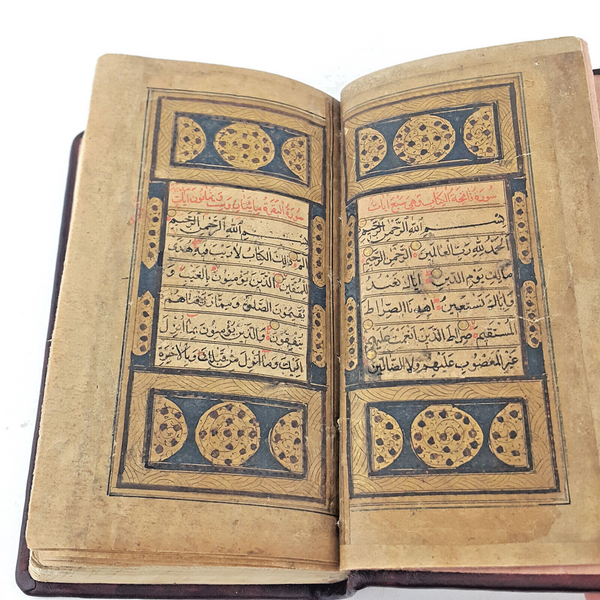 سورة فاتحة الكتاب وهي سبع آيات
بسم الله الرحمن الرحيم
الحمد لله رب العالمين الرحمن الرحيم
مالك يوم الدين اياك نعبد
واياك نستعين اهدنا الصراط
المستقيم صراط الذين انعمت عليهم
غير المغضوب عليهم ولا الضالين
سورة البقرة مائتان و وثمانون آيات
بسم الله الرحمن الرحيم
الم ذلك الكتاب لا ريب فيه هدى
للمتقين الذين يؤمنون بالغيب و
يقيمون الصلوة ومما رزقناهم
ينفقون والذين يؤمنون بما انزل
اليك وما انزل من قبلك وبالاخرة